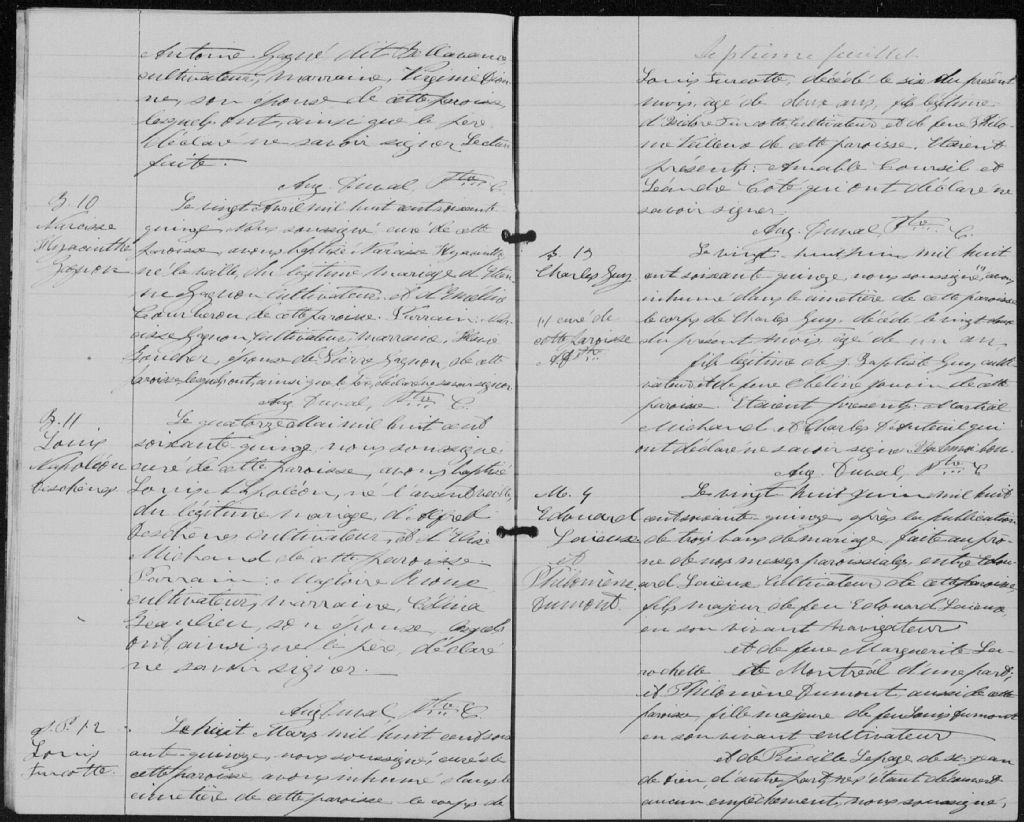 Antoine Gagné dit
cultivateur, marraine, Virginie Dion
ne, son épouse de cette paroisse,
lesquels ont, ainsi que le père
déclaré ne savoir signer. Lecture
faite.
Aug. Duval, Ptre C.
B. 10
Narcisse
Hyacinthe
Gagnon
Le vingt Avril mil huit cent soixante
quinze Nous soussigné curé de cette
paroisse avons baptisé Narcisse Hyacinthe
né la veille, du légitime mariage d'
ne Gagnon cultivateur et d'
de cette paroisse. Parrain:
Gagnon, cultivateur, marraine,
épouse de Gagnon, de cette
paroisse lesquels ont, ainsi que le père, déclaré ne savoir signer
Aug. Duval, Ptre C.
B. 11
Louis
Napoléon
Deschênes
Le quatorze Mai mil huit cent
soixante quinze, nous soussigné
curé de cette paroisse, avons baptisé
Louis Napoléon, né l'avant veille,
du légitime mariage, d'Alfred
Deschênes cultivateur, et d'
Michaud de cette paroisse
Parrain: Magloire Rioux
cultivateur, marraine, Célina
Beaulieu, son épouse, lesquels
ont, ainsi que le père, déclaré
ne savoir signer.
Aug. Duval, Ptre C.
S. 12
Louis
Turcotte.
Le huit Mars mil huit cent soix
ante quinze, nous soussigné, curé de
cette paroisse, avons inhumé dans le
cimetière de cette paroisse le corps de
Septième feuillet
Louis Turcotte, décédé le six du présent
mois, agé de deux ans, fils légitime
d'Isidore Turcotte cultivateur et de feue Philo
mène de cette paroisse. Etaient
présents: Amable Coursil et
Léandre Coté qui ont déclaré ne
savoir signer.
Aug. Duval, Ptre C.
S. 13
Charles Guy
(1) curé de
cette paroisse
Ptre
Le vingt huit Juin mil huit
cent soixante quinze, nous soussigné (1) avons
inhumé dans le cimetière de cette paroisse
le corps de Charles Guy, décédé le vingt
du présent mois, agé de un an,
fils légitime de J. Baptiste Guy culti
vateur et de feue de cette
paroisse. Etaient présents: Martial
Michaud, et Charles D'Auteuil qui
ont déclaré ne savoir signer
Aug. Duval, Ptre C
M. 4
Edouard
Lavieux
et
Philomène
Dumont.
Le vingt huit Juin mil huit
cent soixante quinze, après la publication
de trois bans de mariage, faite au prô
ne de nos messes paroissiales, entre Edou
ard Lavieux, cultivateur de cette paroisse,
fils majeur de feu Edouard Lavieux,
en son vivant navigateur
et de feue Marguerite La
rochelle de Montréal d'une part;
et Philomène Dumont, aussi de cette
paroisse, fille majeure de feu Louis Dumont
en son vivant cultivateur
et de Priscille Lepage de St. Jean
de Dieu, d'autre part, ne s'étant découvert
aucun empêchement, nous soussigné,